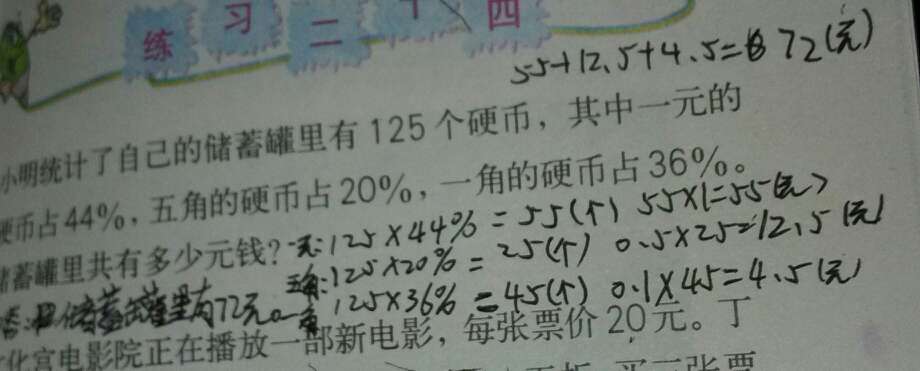 练习二十四
55+12.5+4.5=72(元)
小明统计了自己的储蓄罐里有125个硬币，其中一元的
硬币占44%，五角的硬币占20%，一角的硬币占36%。
储蓄罐里共有多少元钱？
一元:125×44%=55(个) 55×1=55(元)
五角:125×20%=25(个) 0.5×25=12.5(元)
一角 125×36%=45(个) 0.1×45=4.5(元)
答:储蓄罐里有72元。
文化宫电影院正在播放一部新电影，每张票价20元。丁
买二张票